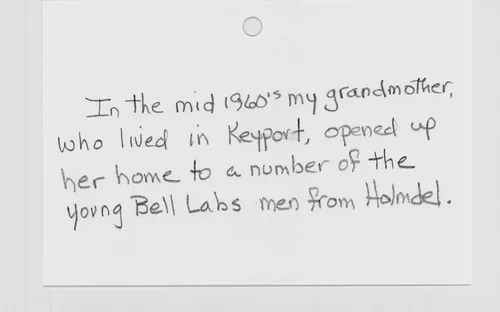 In the mid 1960's my grandmother,
who lived in Keyport, opened up
her home to a number of the
young Bell Labs men from Holmdel.